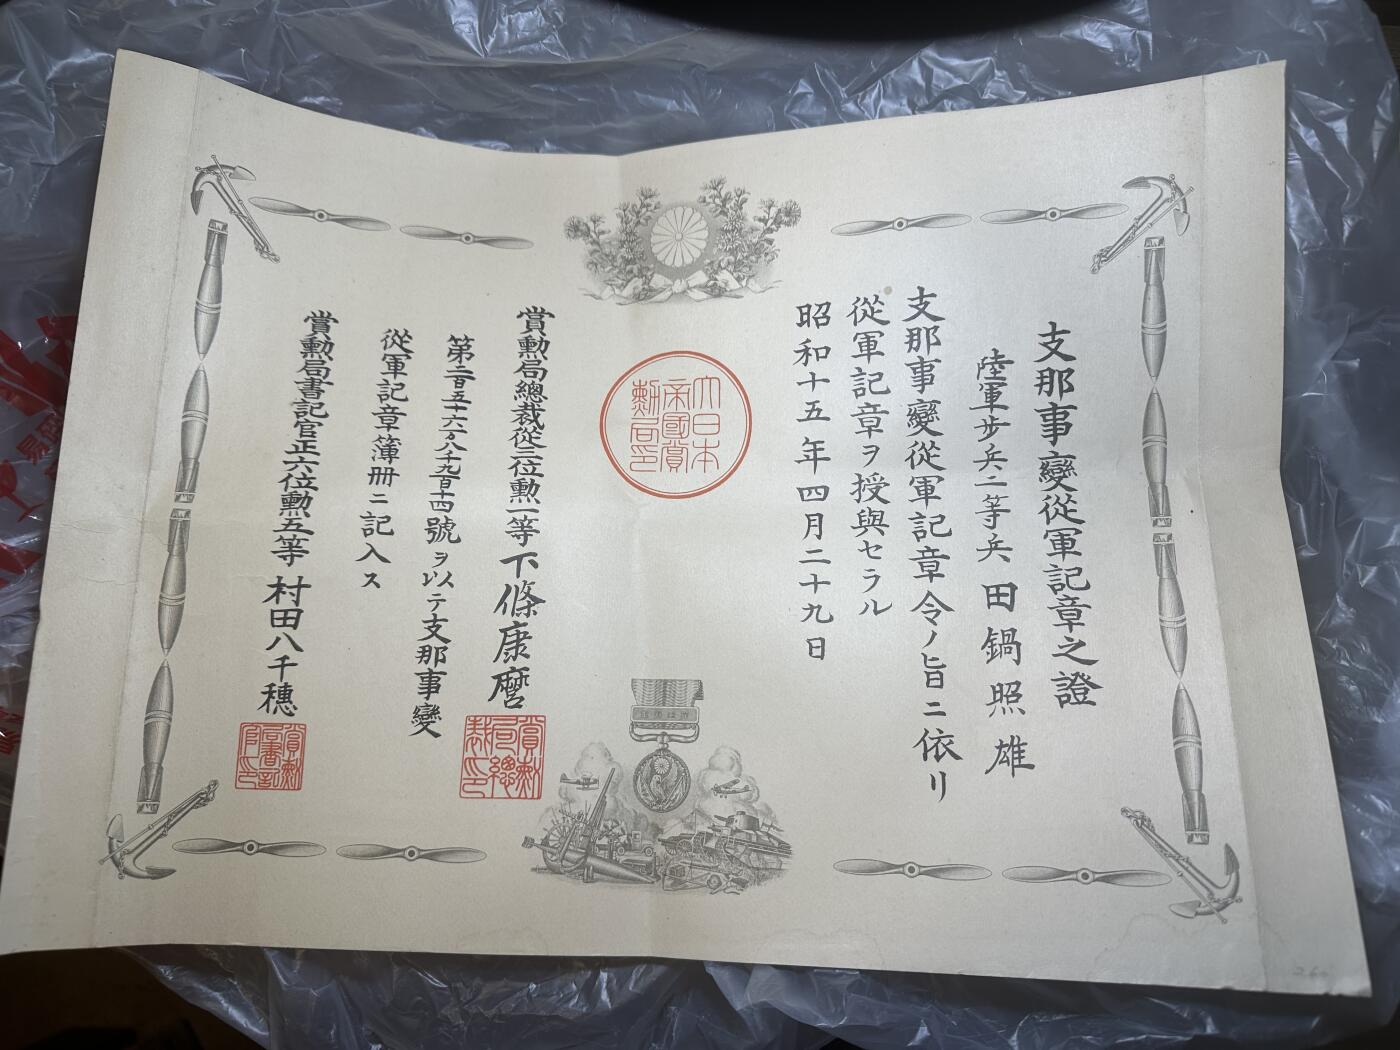 支那事變從軍記章之證
陸軍步兵二等兵 田鍋照雄
支那事變從軍記章令ノ旨ニ依リ
從軍記章ヲ授與セラル
昭和十五年四月二十九日
大日本
帝國賞
勳局印
賞勳局總裁從三位勳一等 下條康麿
賞勳
局總
裁印
號ヲ以テ支那事變
從軍記章簿册ニ記入ス
賞勳局書記官正六位勳五等 村田八千穗
賞勳
局書記
官印